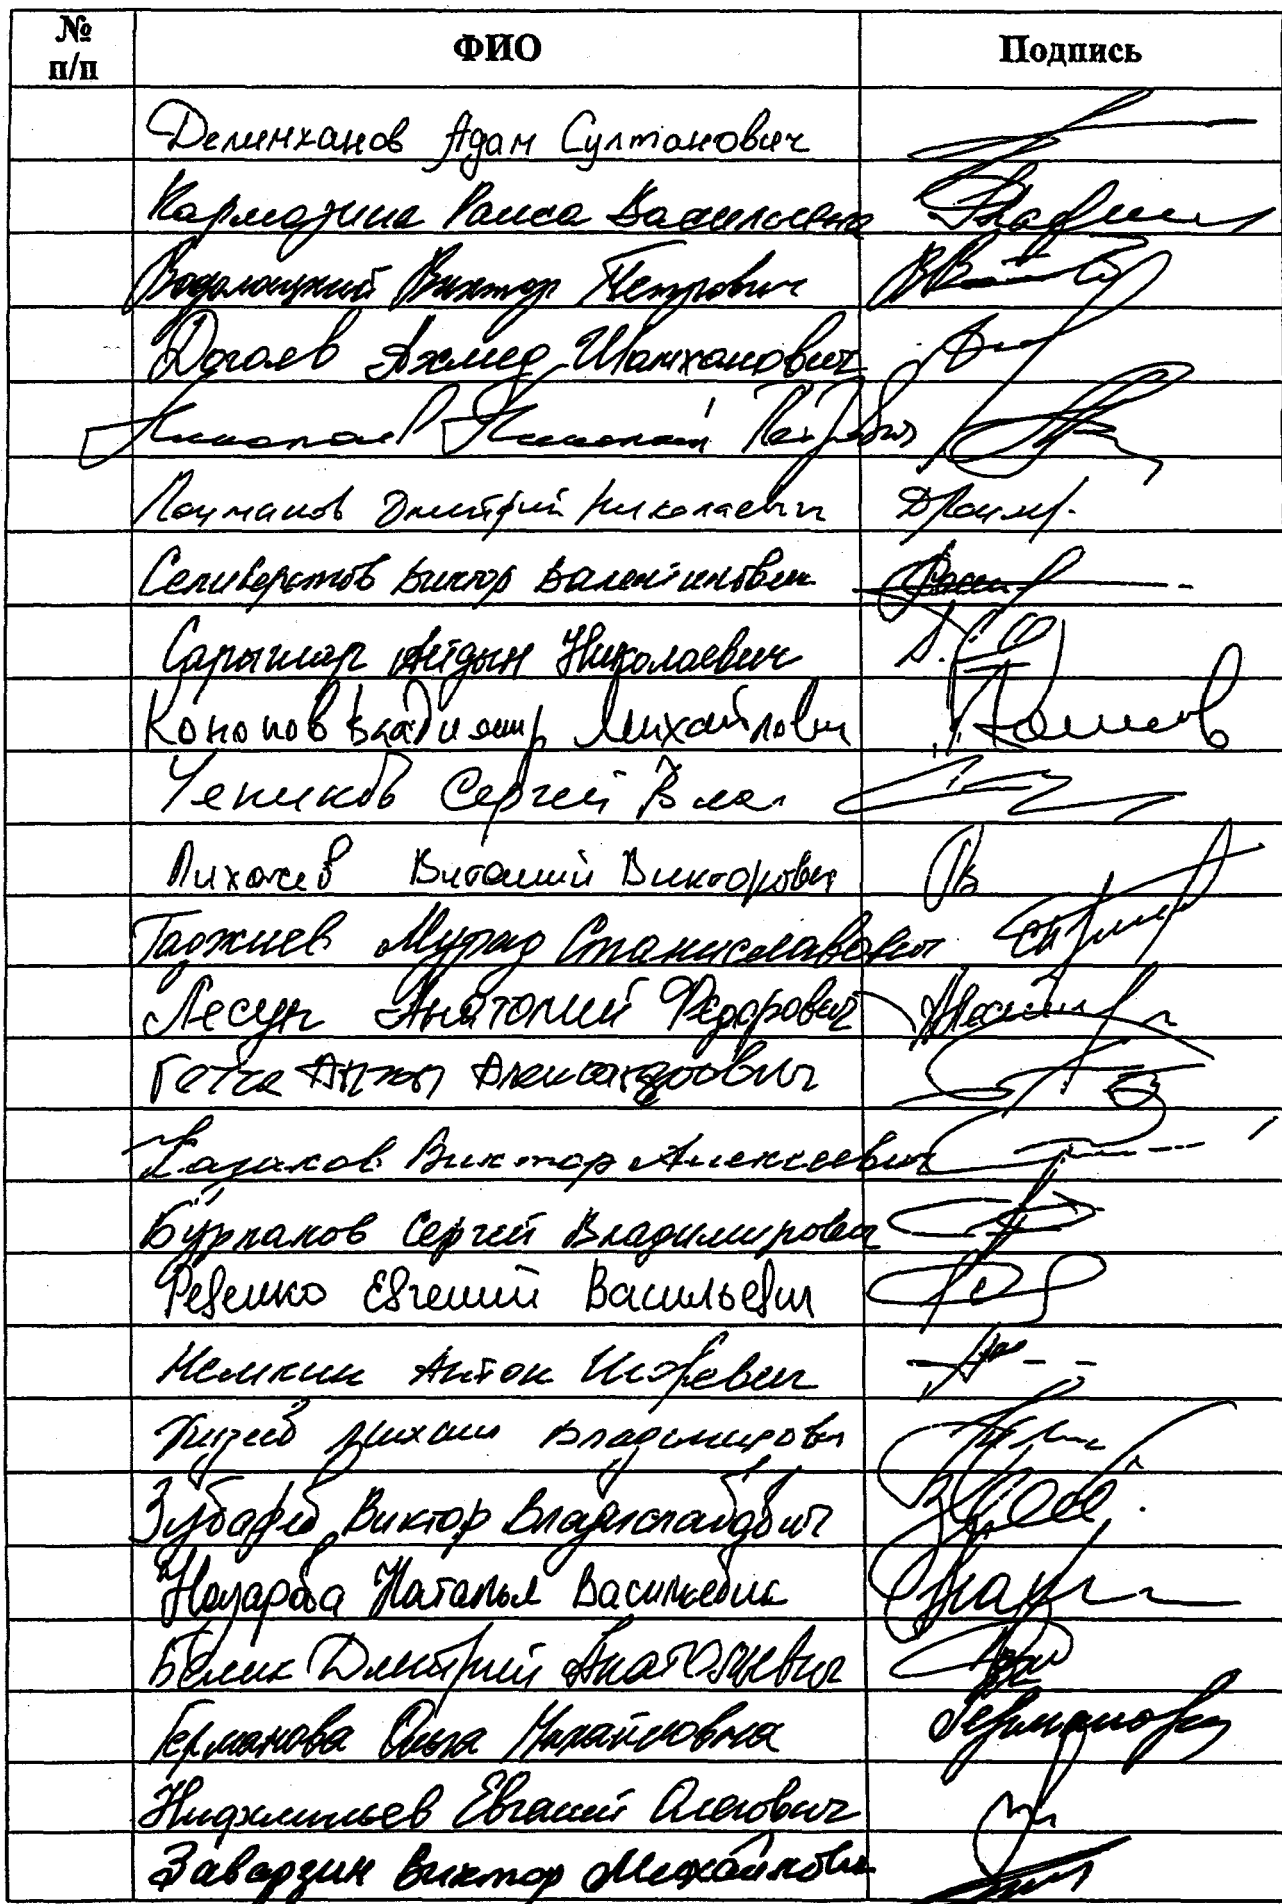 № п/п ФИО Подпись
Делимханов Адам Султанович
Кармазина Раиса Васильевна
Водолацкий Виктор Петрович
Догаев Ахмед Шамханович
Николаев Николай Петрович
Лоцманов Дмитрий Николаевич
Селиверстов Виктор Валентинович
Сарыглар Айдын Николаевич
Кононов Владимир Михайлович
Чепиков Сергей Влад
Лихачев Виталий Викторович
Гаджиев Мурад Станиславович
Лесун Анатолий Федорович
Гетта Антон Александрович
Казаков Виктор Алексеевич
Бурлаков Сергей Владимирович
Ревенко Евгений Васильевич
Немкин Антон Игоревич
Кизеев Михаил Владимирович
Зубарев Виктор Владиславович
Назарова Наталья Васильевна
Белик Дмитрий Анатольевич
Германова Ольга Михайловна Германова
Нифантьев Евгений Олегович
Заварзин Виктор Михайлович